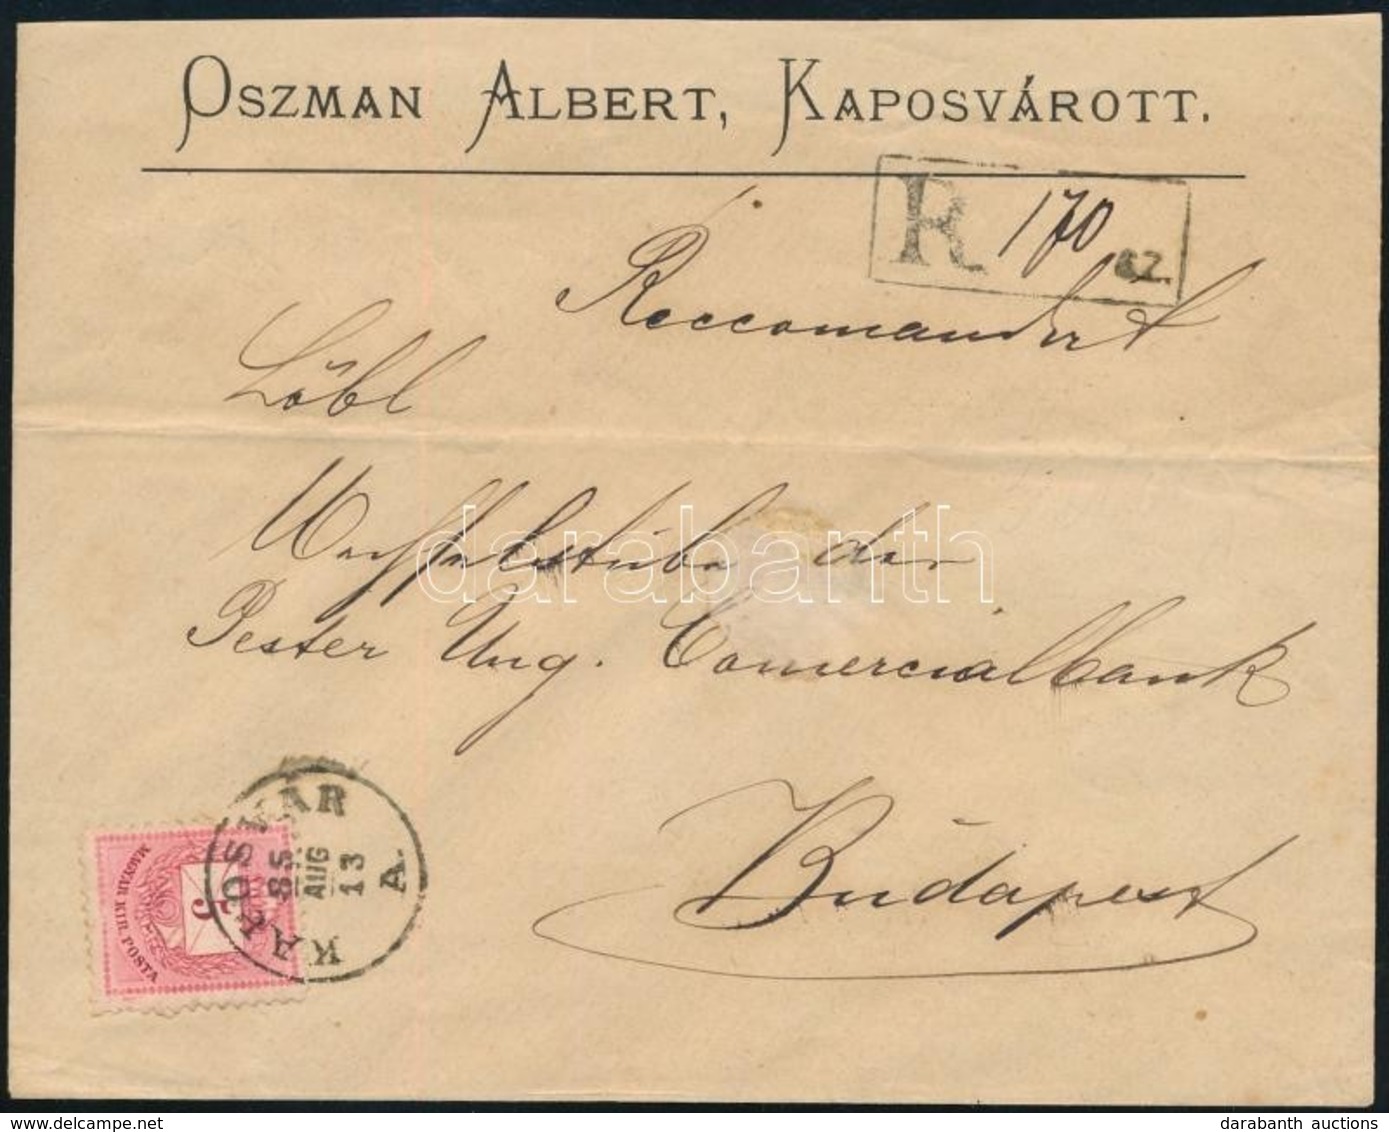 OSZMAN ALBERT, KAPOSVÁROTT.
R 170 SZ.
Reccomandirt
Löbl
Wechselstube der
darabanth
Pester Ung. Comercialbank
Budapest
KAPOSVÁR
85
AUG
13
A.
MAGYAR KIR. POSTA
5
delcampe.net
darabanth auctions